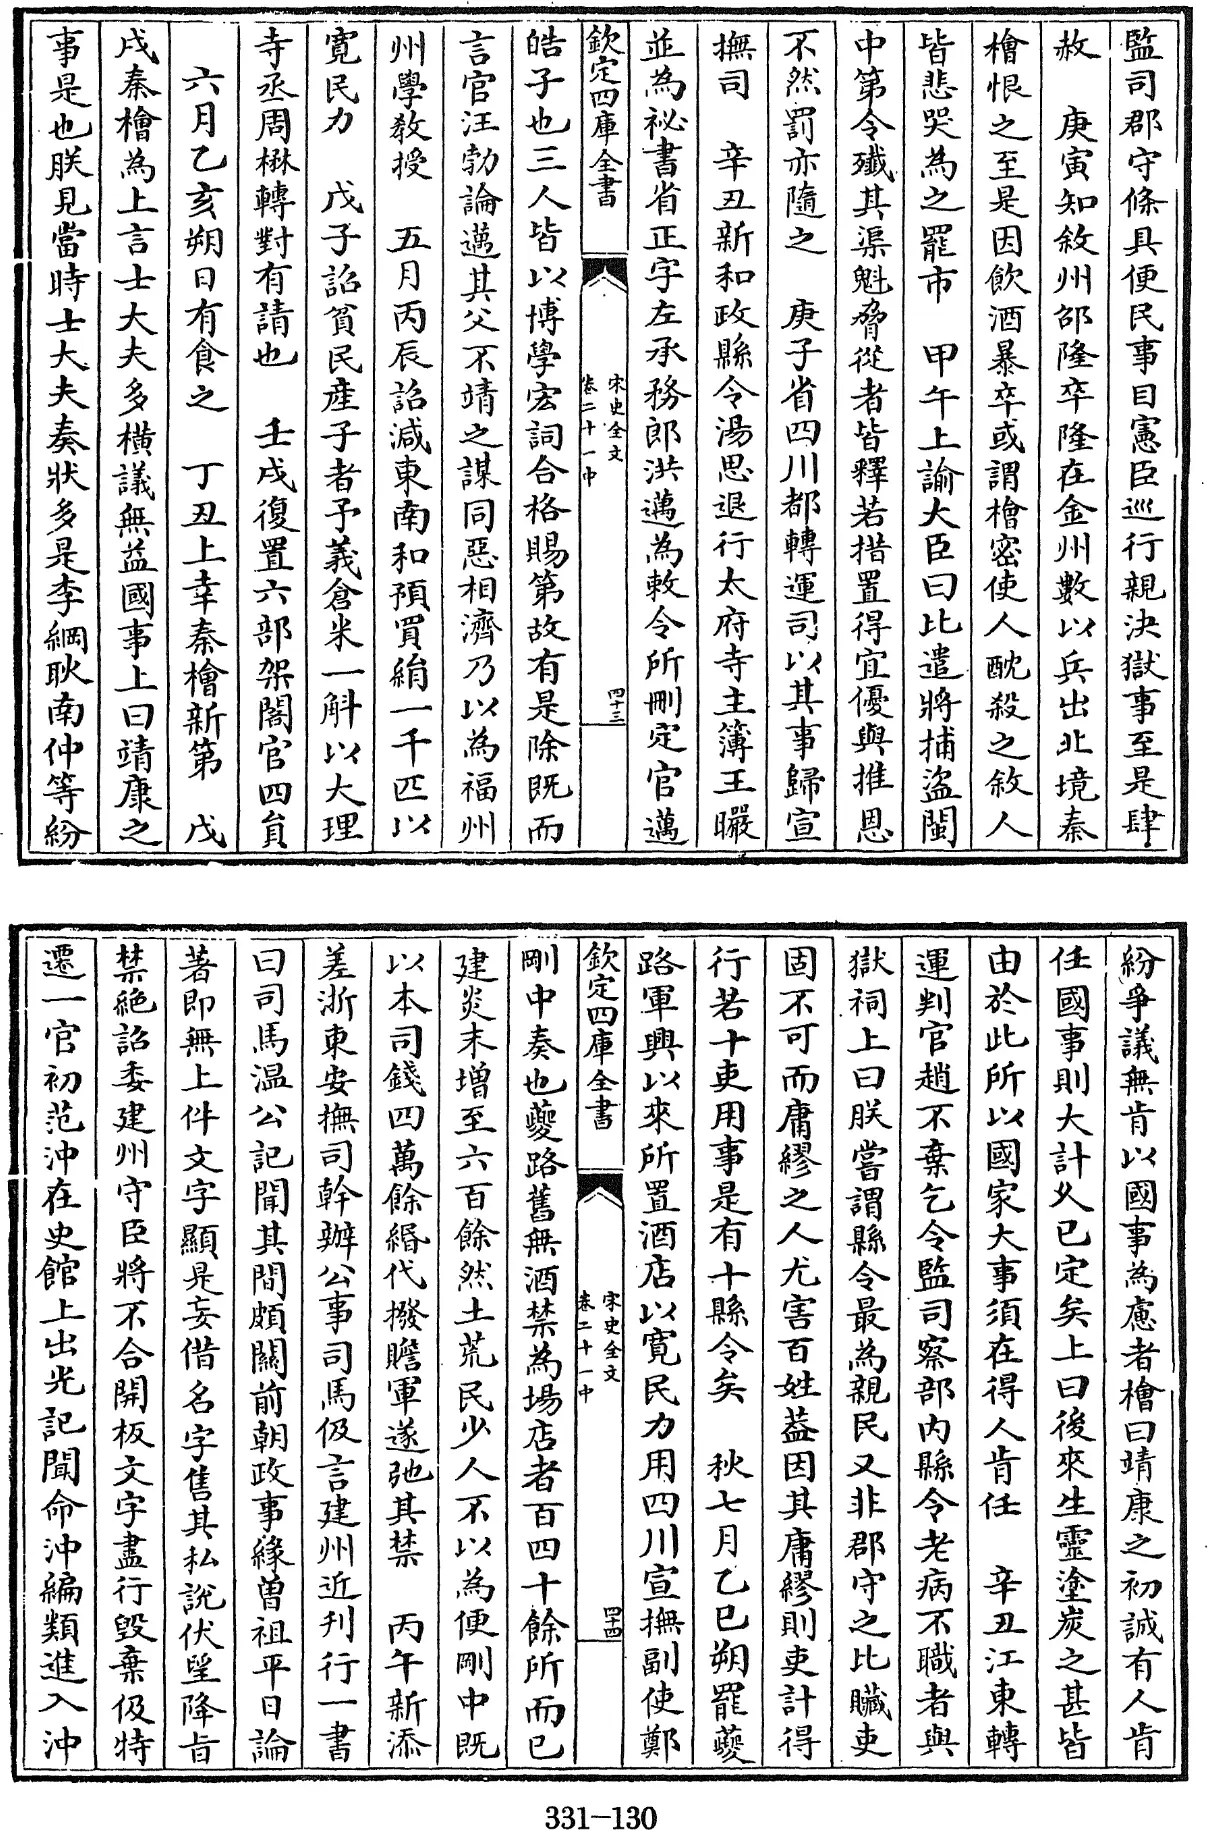 監司郡守條具便民事目憲臣巡行親決獄事至是肆
赦　庚寅知敘州邵隆卒隆在金州數以兵出北境秦
檜恨之至是因飲酒暴卒或謂檜密使人酖殺之敘人
皆悲哭為之罷市　甲午上諭大臣曰比遣將捕盜閩
中第令殲其渠魁脅從者皆釋若措置得宜優與推恩
不然罰亦隨之　庚子省四川都轉運司以其事歸宣
撫司　辛丑新和政縣令湯思退行太府寺主簿王曮
並為祕書省正字左承務郎洪邁為敕令所刪定官邁
欽定四庫全書
宋史全文
卷二十一中
四十三
皓子也三人皆以博學宏詞合格賜第故有是除既而
言官汪勃論邁其父不靖之謀同惡相濟乃以為福州
州學敎授　五月丙辰詔減東南和預買絹一千匹以
寛民力　戊子詔貧民産子者予義倉米一斛以大理
寺丞周楙轉對有請也　壬戌復置六部架閣官四員
六月乙亥朔日有食之　丁丑上幸秦檜新第　戊
戌秦檜為上言士大夫多橫議無益國事上曰靖康之
事是也朕見當時士大夫奏狀多是李綱耿南仲等紛
紛爭議無肯以國事為慮者檜曰靖康之初誠有人肯
任國事則大計乆已定矣上曰後來生靈塗炭之甚皆
由於此所以國家大事須在得人肯任　辛丑江東轉
運判官趙不棄乞令監司察部内縣令老病不職者與
獄祠上曰朕嘗謂縣令最為親民又非郡守之比贓吏
固不可而庸繆之人尤害百姓葢因其庸繆則吏計得
行若十吏用事是有十縣令矣　秋七月乙巳朔罷夔
路軍興以來所置酒店以寛民力用四川宣撫副使鄭
欽定四庫全書
宋史全文
卷二十一中
四十四
剛中奏也夔路舊無酒禁為場店者百四十餘所而已
建炎末增至六百餘然土荒民少人不以為便剛中既
以本司錢四萬餘緡代撥贍軍遂弛其禁　丙午新添
差浙東安撫司幹辦公事司馬伋言建州近刋行一書
曰司馬温公記聞其間頗關前朝政事緣曽祖平日論
著即無上件文字顯是妄借名字售其私說伏望降旨
禁絶詔委建州守臣將不合開板文字盡行毀棄伋特
遷一官初范沖在史館上出光記聞命沖編類進入沖
331-130